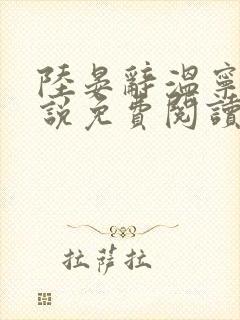 陸晏辭溫寧
說免費閱讀
拉薩拉